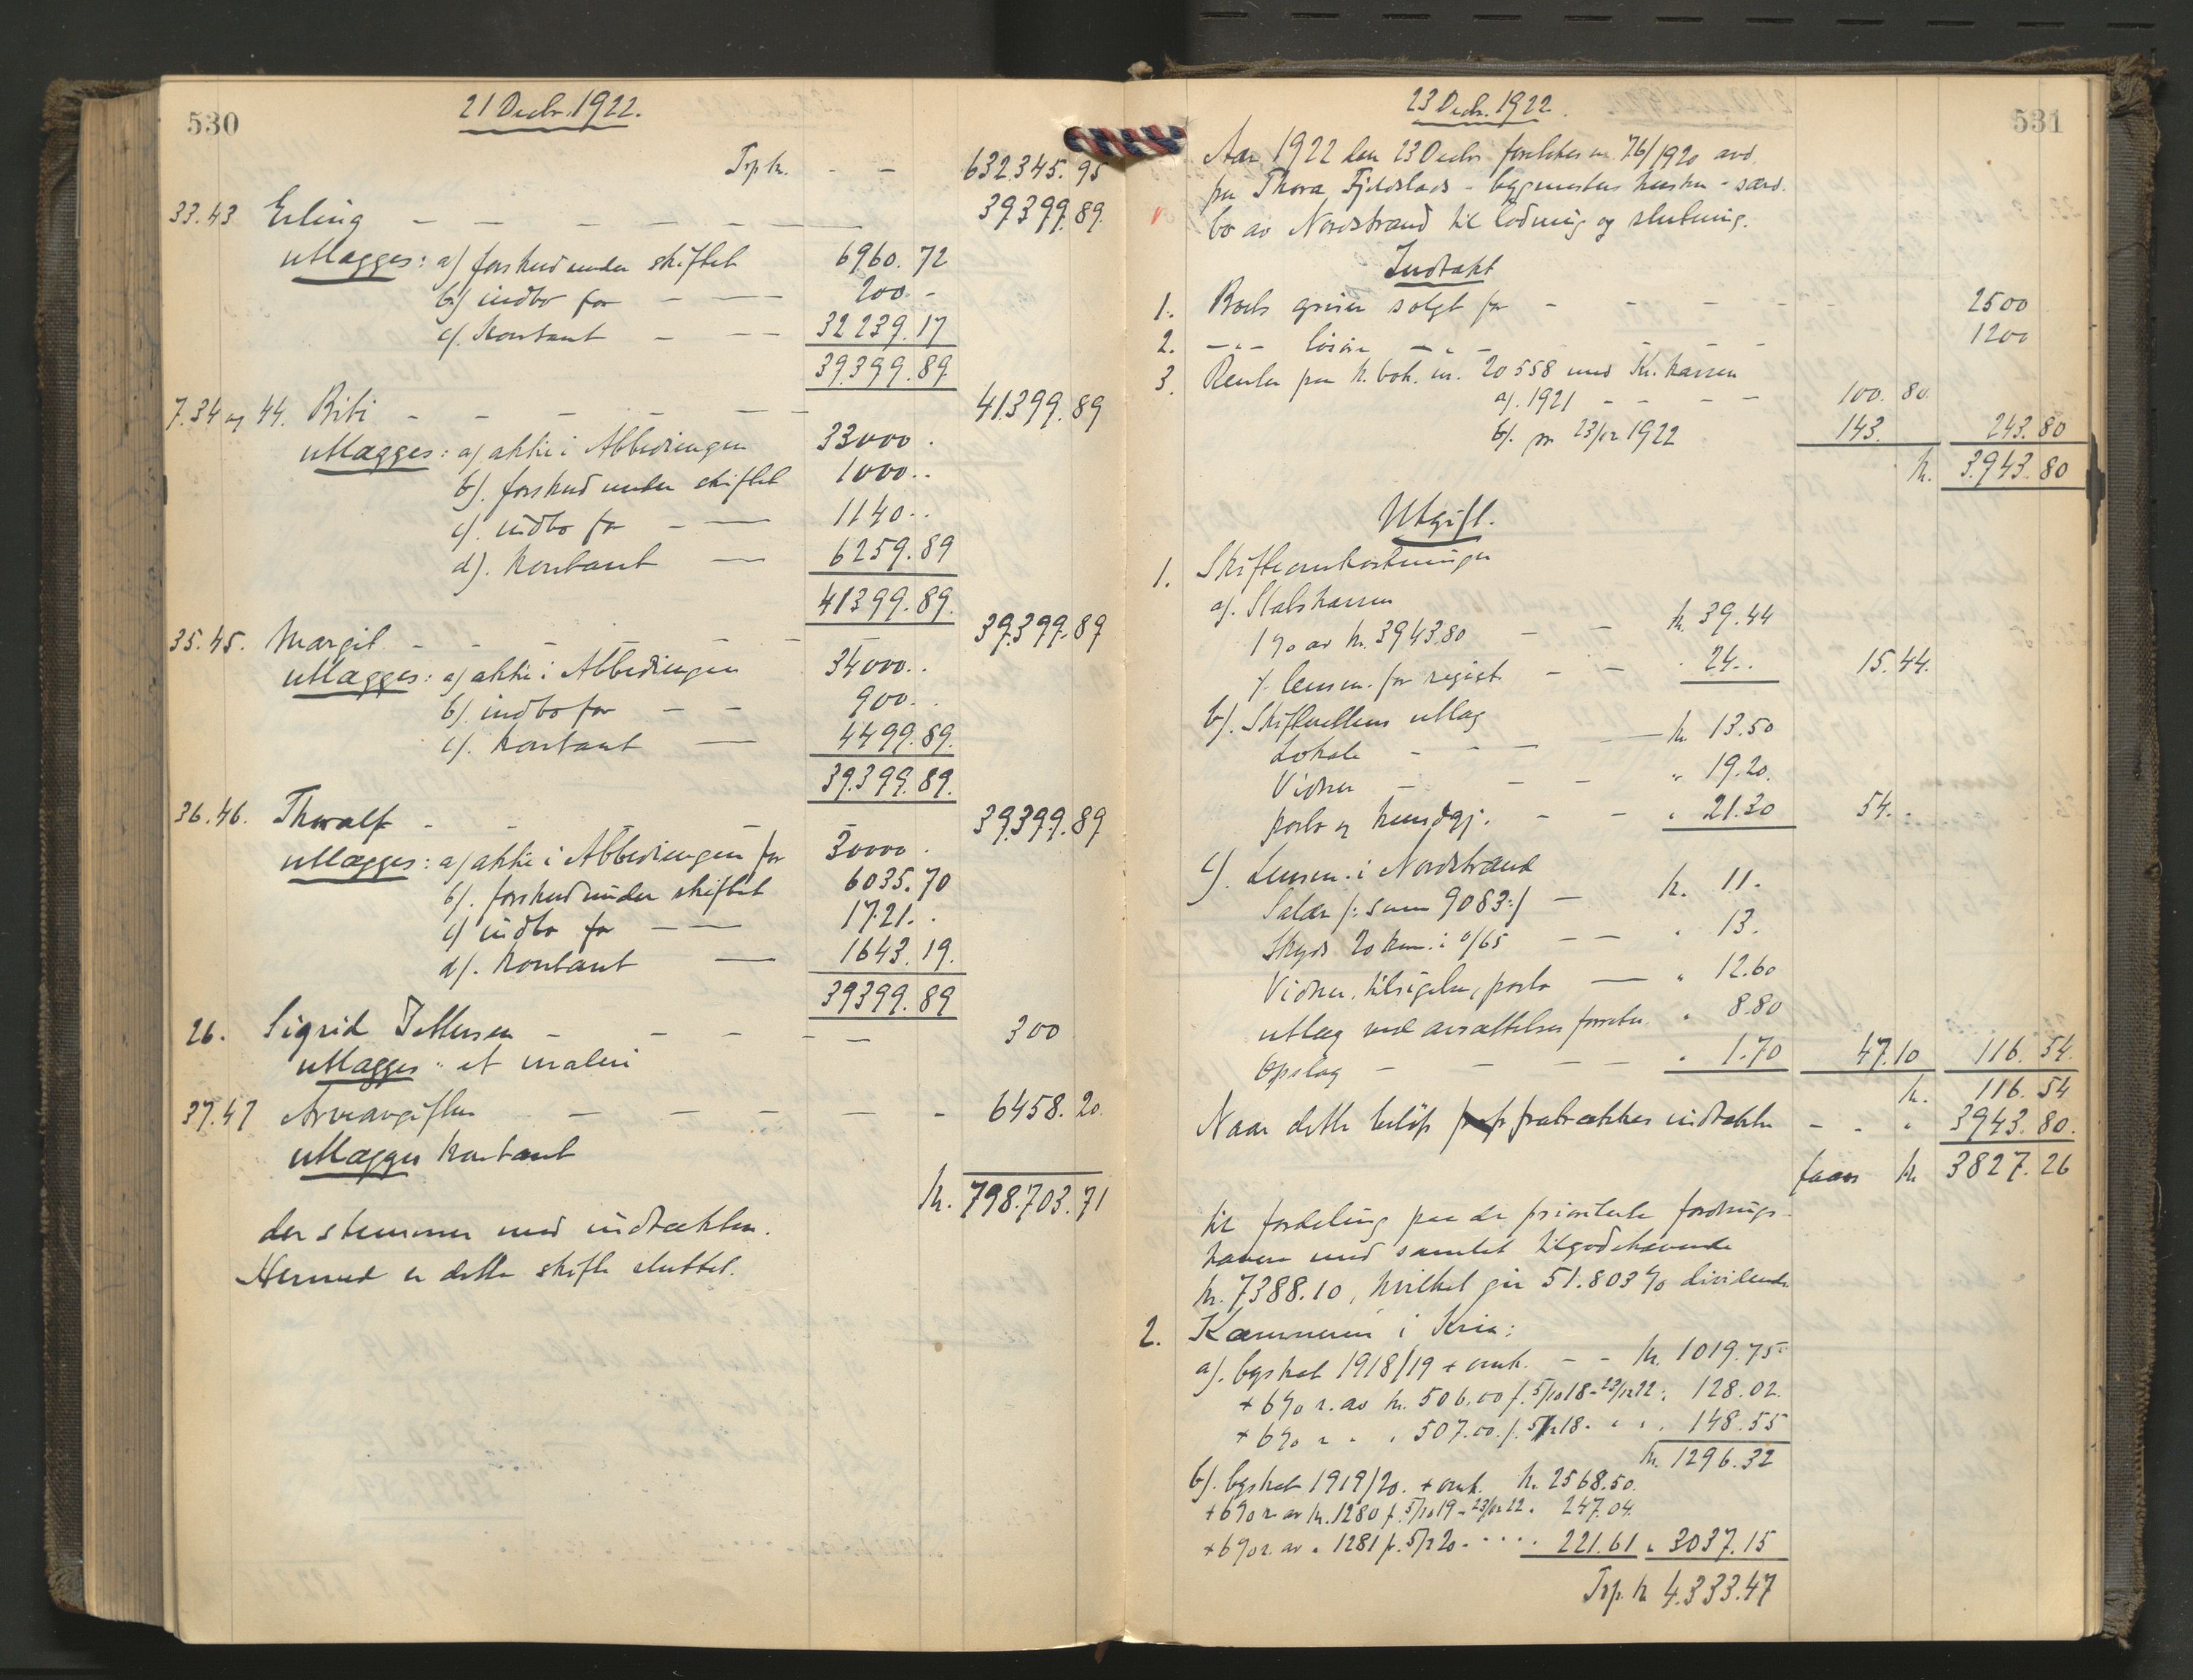 530
21 Decbr. 1922.
Trp kr. - - 632345.95
33.43 Erling - - - - - - 39399.89.
utlægges: a/ forskud under skiftet 6960.72
b/ indbo for - - 200 -
c/. Kontant - - 32239.17
39399.89.
7.34 og 44. Bibi - - - - - 41399.89
utlægges: a/ aktie i Abbediengen 33000.
b/. forskud under skiftet 1000..
c/. indbo for - - 1140..
d/. Kontant - 6259.89
41399.89.
35.45. Margit - - - - - 39399.89
utlægges: a/ aktie i Abbediengen 34000..
b/. indbo for - - 900..
c/. Kontant - 4499.89.
39.399.89.
36.46. Thoralf - - - - 39.399.89
utlægges: a/ aktie i Abbediengen for 30000.
b/. forskud under skiftet 6035.70
c/ indbo for - - 1721..
d/. Kontant - 1643.19.
39399.89
26. Sigrid - - - - 300
utlægges: et maleri
37.47 Arveavgiften - - - - - 6458.20.
utlægges kontant
kr. 798.703.71
der stemmer med indtækten.
Hermed er dette skifte sluttet.
531
23 Decbr. 1922.
Aar 1922 den 23 Decbr foretokes nr. 76/1920 avd.
fru Thora Fjeldstads - bygmesters hustru - særd.
bo av Nordstrand til lodning og slutning.
Indtækt
1. Boets griser solgt for - - - - - 2500
2. -"- løsøre -"- - - - - 1200
3. Renter paa k. bok. nr. 20558 med Kr. kassen
a/. 1921 - - - - 100.80.
b/. pr 23/12 1922 143. 243.80
kr. 3943.80
Utgift.
1. Skifteomkostninger
a/. Statskassen
1% av kr. 3943.80 - - kr. 39.44
÷ lensm. for regist - - . 24.. 15.44.
b/. Skifterettens utlæg
Lokale - - - kr. 13.50
Vidner - - - " 19.20.
porto og kundgj. - - " 21.30 54..
c/. Lensm. i Nordstrand
Salær /: sum 9083:/ - kr. 11.
Skyds 20 km. à 0/65 - - " 13.
Vidner, tilsigelse, porto - " 12.60
utlæg ved avsættelses forretn. " 8.80
Opslag - - - - " 1.70 47.10 116.54.
kr. 116.54
Naar dette beløp fratrækkes indtækten - - " 3943.80.
faaes kr 3827.26
til fordeling paa de prioriterte fordrings-
havere med samlet tilgodehavende
kr. 7388.10, hvilket gir 51.803% dividende
2. Kæmneren i Kria:
a/. byskat 1918/19 + omk. - - kr. 1019.75
+ 6% r. av kr. 506.00 f. 5/10 18 - 23/12 22 " 128.02.
+ 6% " " " 507.00 f. 5/12 18 - " " . 148.55
kr. 1296.32
b/. byskat 1919/20. + omk. kr. 2568.50.
+ 6% r. av kr. 1280 f. 5/10 19 - 23/12 22 . 247.04.
+ 6% r. av " 1281 f. 5/2 20 - . . . . 221.61 " 3037.15
Trp. kr 4.333.47